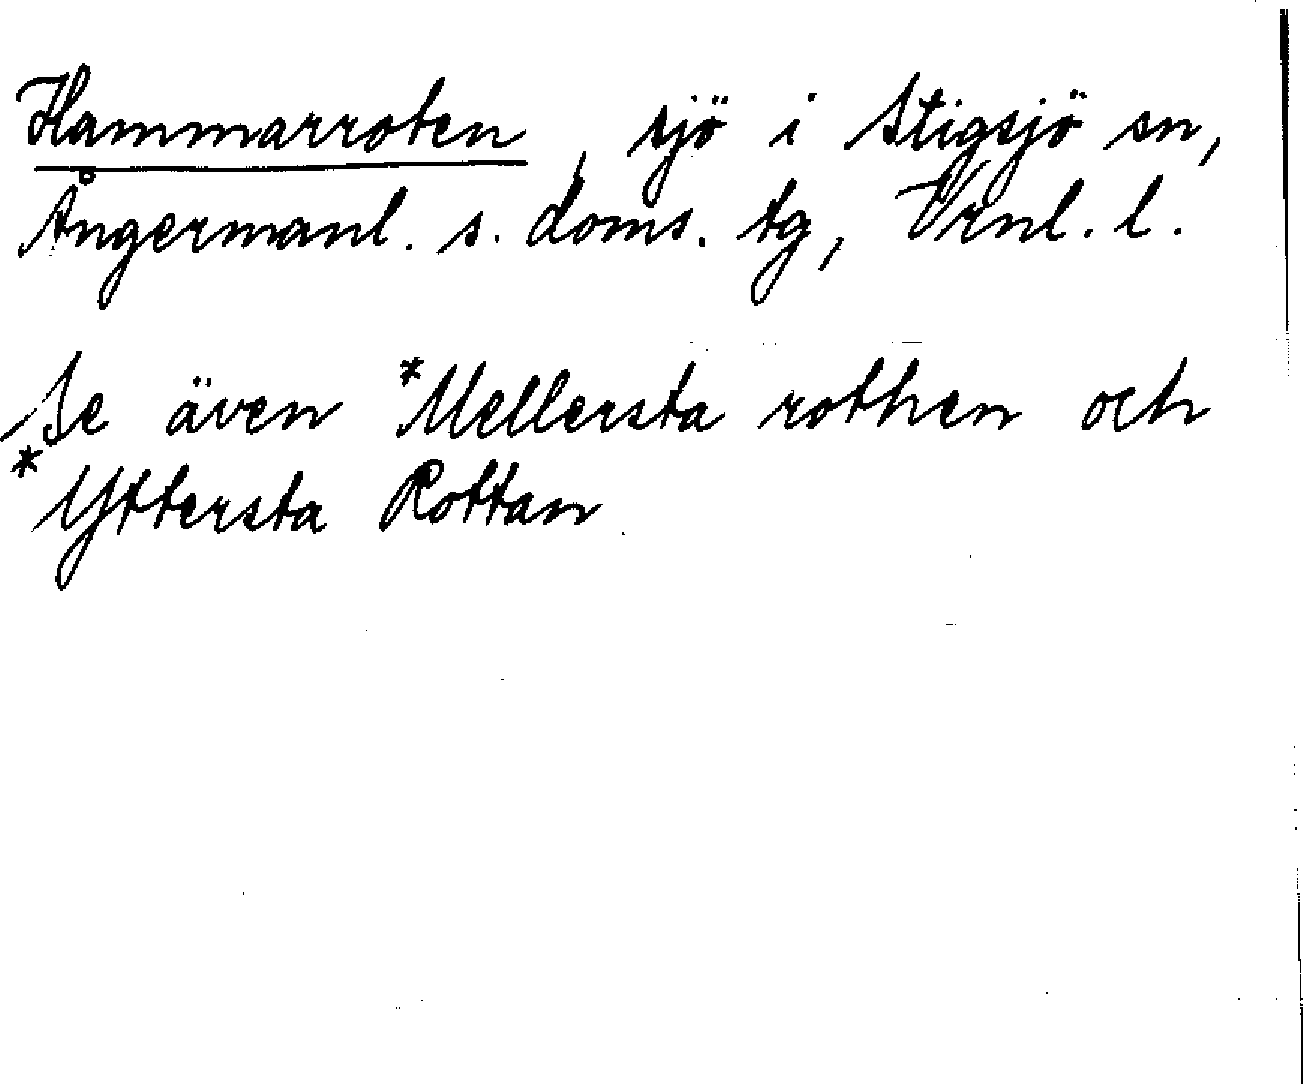 Hammarroten, sjö i Stigsjö sn,
Ångermanl. s. doms. tg, Vrnl. l.
Se även *Mellersta rothen och
*Yttersta Rottan